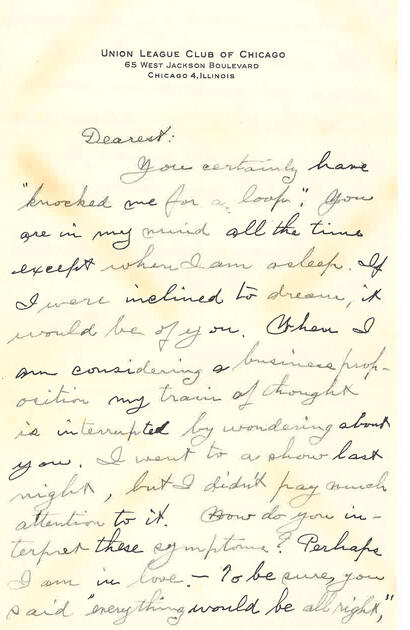 UNION LEAGUE CLUB OF CHICAGO
65 WEST JACKSON BOULEVARD
CHICAGO 4, ILLINOIS
Dearest:
You certainly have
"knocked me for a loop". You
are in my mind all the time
except when I am asleep. If
I were inclined to dream, it
would be of you. When I
am considering a business prop-
osition my train of thought
is interrupted by wondering about
you. I went to a show last
night, but I didn't pay much
attention to it. How do you in-
terpret these symptoms? Perhaps
I am in love. - To be sure, you
said "everything would be all right,"